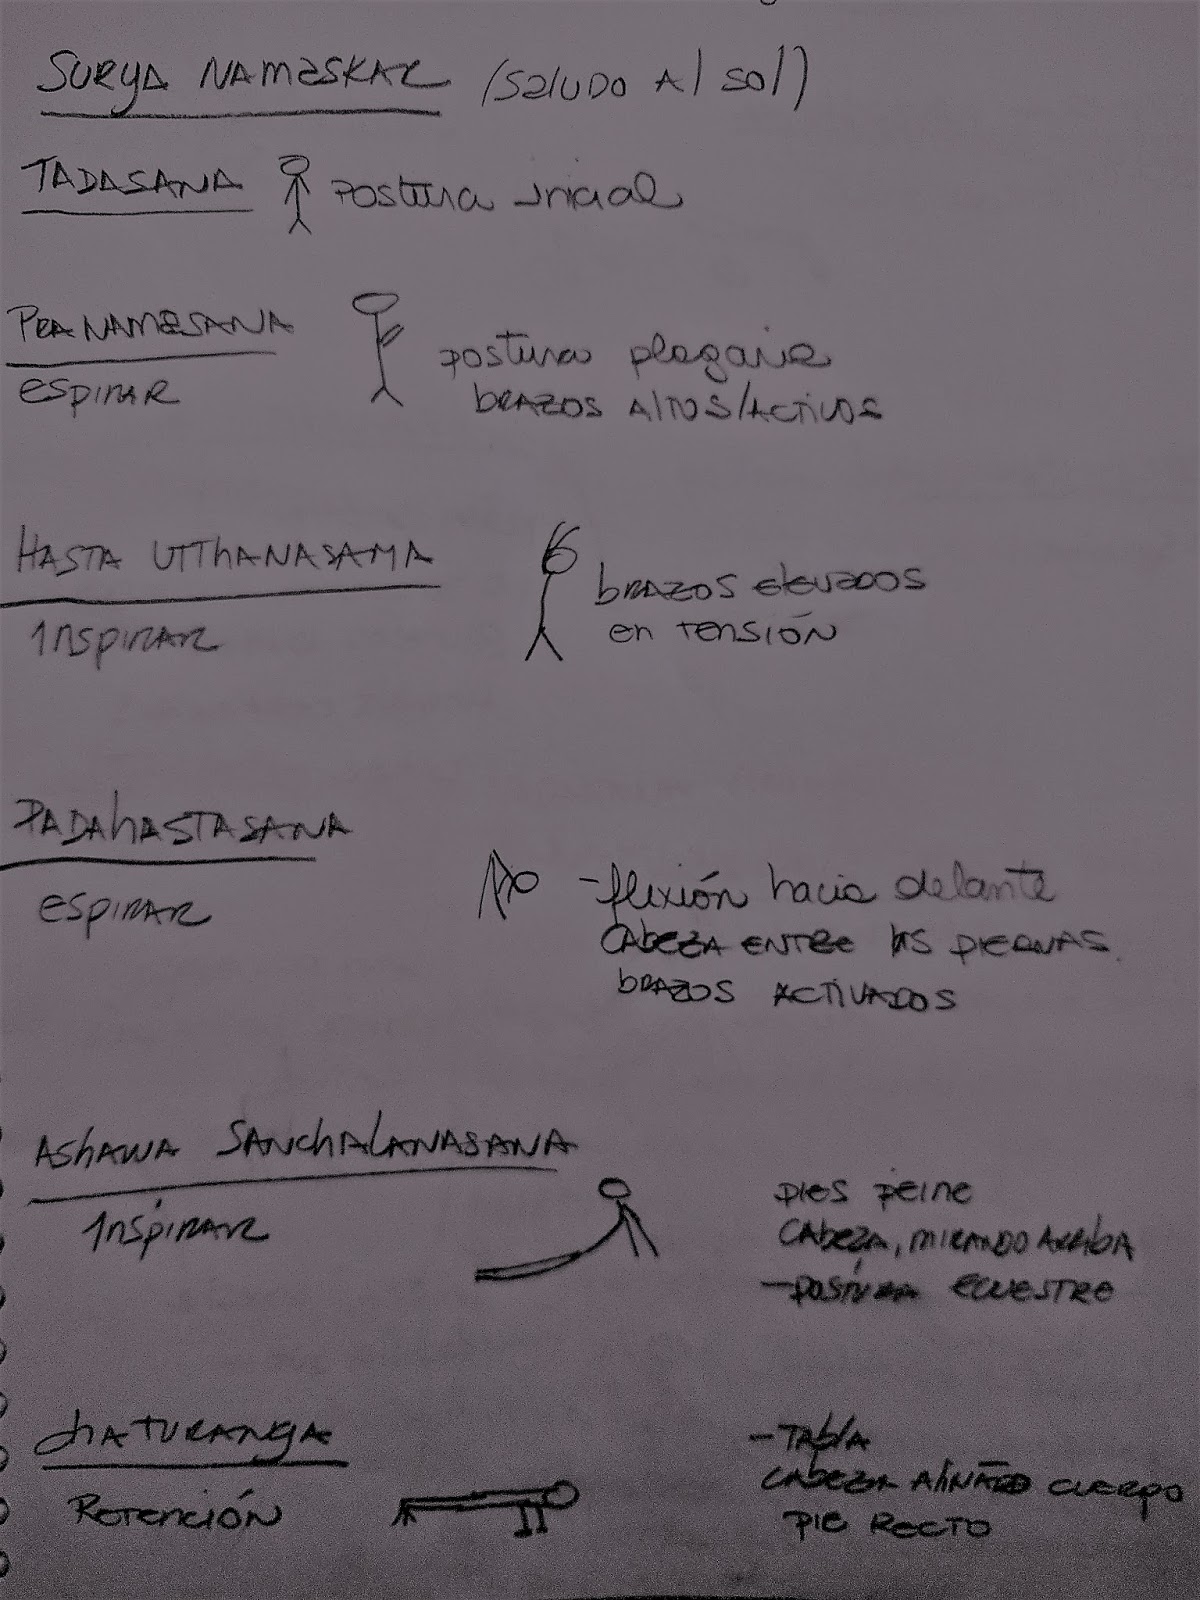 SURYA NAMASKAR (SALUDO Al Sol)
TADASANA postura inicial
PRANAMASANA
postura plegaria
ESPIRAR
BRAZOS AlTOS/ACTIVOS
HASTA UTThANASAMA
BRAZOS elevados
INSPIRAR
en TENSIÓN
PADAhASTASANA
- flexión hacia delante
ESPIRAR
CAbEZA ENTRE lAS PIERNAS.
bRAZOS ACTIVADOS
AShAWA SANChAlANASANA
PIES PEINE
INSPIRAR
CAbEZA, MIRANDO ARRIbA
- POSTURA ECUESTRE
ChATURANGA
- TAblA
CAbEZA AlINEADO CUERPO
RETENCIÓN
PIE RECTO